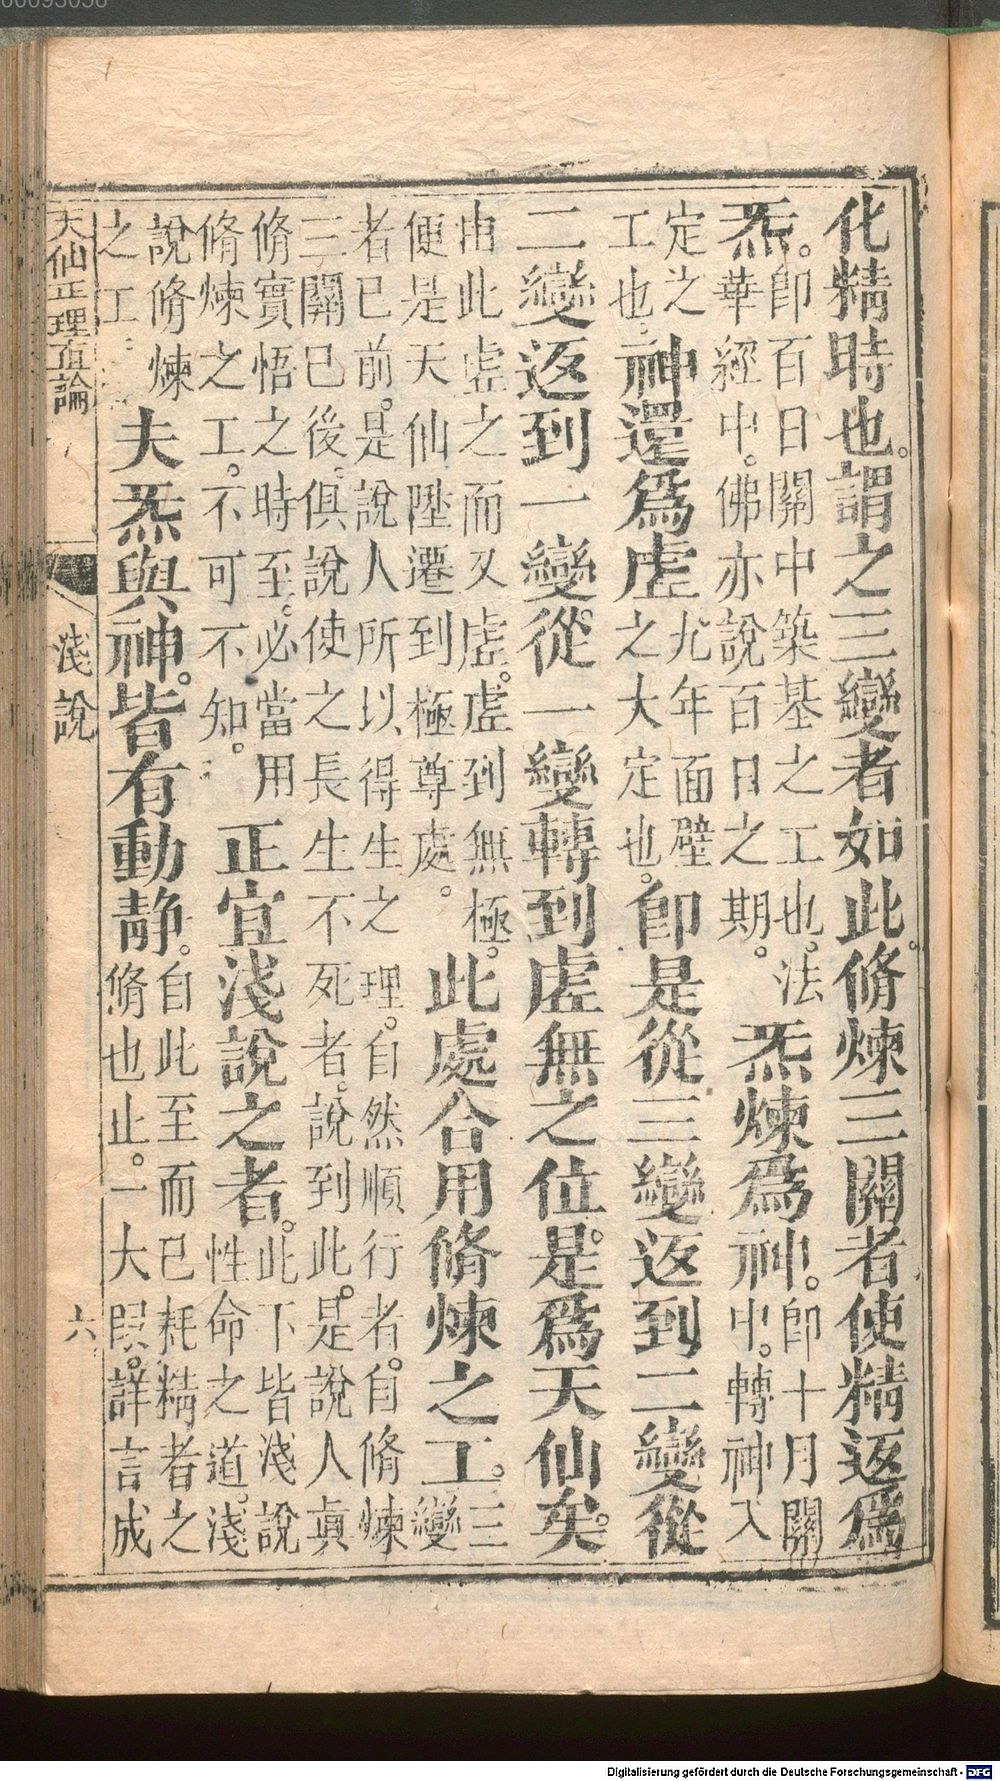 化精時也。謂之三變者如此。脩煉三關者使精返爲
炁。卽百日關中築基之工也。法華經中。佛亦說百日之期。炁煉爲神。卽十月關中。轉神入
定之工也。神還爲虛九年面壁之大定也。卽是從三變返到二變從
二變返到一變。從一變轉到虛無之位。是爲天仙矣。
由此虛之而又虛。虛到無極。便是天仙陞遷到極尊處。此處合用脩煉之工。三變
者已前。是說人所以得生之理。自然順行者。自脩煉三關已後。俱說使之長生不死者。說到此。是說人真
脩實悟之時至。必當用脩煉之工。不可不知。正宜淺說之者。此下皆淺說性命之道。淺
說脩煉之工夫炁與神。皆有動靜。自此至而已耗精者之脩也止。一大段。詳言成
天仙正理直論
淺說
六
00093058
Digitalisierung gefördert durch die Deutsche Forschungsgemeinschaft - DFG